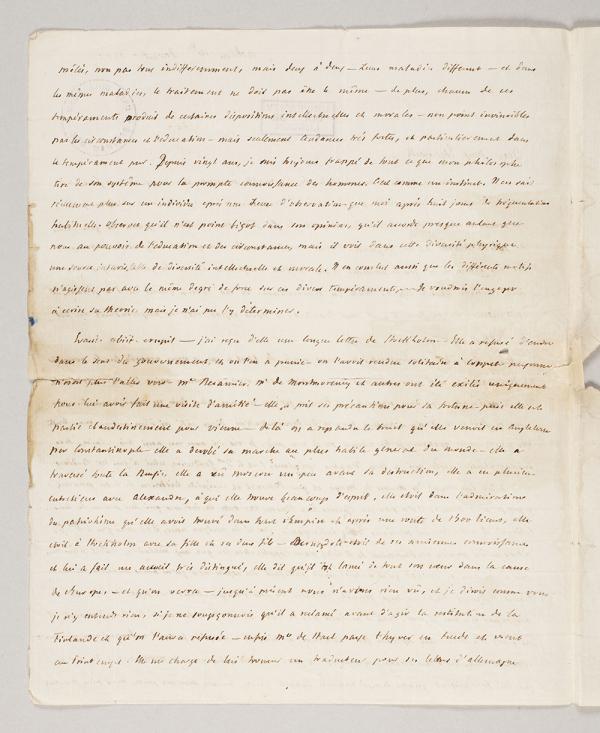 mêlés, non pas tous indifféremment, mais deux à deux — Leurs maladies different — et dans
les même maladies, le traitement ne doit pas être le même — de plus, chacun de ces
tempéraments produit de certaines dispositions intellectuelles et morales — non point invincibles
par les circonstances et l'education — mais seulement tendances très fortes, et particulierement dans
le temperament pur. Depuis vingt ans, je suis toujours frappé de tout ce que mon philosophe
tire de son systême pour la prompte connoissance des hommes. C'est comme un instinct. Il en sait
plus sur un individu après une heure d'observation que moi après huit jours de fréquentation
habituelle. Observez qu'il n'est point bigot dans son opinion, qu'il accorde presque autant que
nous au pouvoir de l'education et des circonstances, mais il voit dans cette diversité physique
une source intarissable de diversité intellectuelle et morale. Il en conclut aussi que les différents motifs
n'agissent pas avec le même degré de force sur ces divers tempéraments, — Je voudrois l'engager
à écrire sa théorie mais je n'ai pu l'y déterminer.
evasit erupit — j'ai reçu d'elle une longue lettre de Stockholm — Elle a refusé d'écrire
dans le sens du gouvernement, et on l'en a punie — on l'avoit rendue solitaire à Coppet personne
n'osoit plus l'aller voir — Me Recamier, Mr de Montmorency et autres ont été exilés uniquement
pour lui avoir fait une visite d'amitié — elle a pris ses précautions pour sa fortune — puis elle est
partie clandestinement pour Vienne — de là on a repandu le bruit qu'elle venoit en Angleterre
par Constantinople — elle a derobé sa marche au plus habile general du monde — elle a
traversé toute la Russie, elle a vu Moscou un peu avant sa destruction, elle a eu plusieurs
entretiens avec Alexandre, à qui elle trouve beaucoup d'esprit, elle etoit dans l'admiration
du patriotisme qu'elle avoit trouvé dans tout l'Empire — et après une route de 1500 lieues, elle
etoit à Stockholm avec sa fille et ses deux fils — Bernadote etoit de ses anciennes connoissances
et lui a fait un accueil très distingué, elle dit qu'il est lancé de tout son cœur dans la cause
de l'Europe — et qu'on verra — jusqu'à présent nous n'avons rien vu, et je dirois comme vous
je n'y entends rien, si je ne soupçonnois qu'il a reclamé avant d'agir la restitution de la
Finlande et qu'on l'aura refusée — enfin Me de Stael passe l'hyver en Suede et vient
au Printemps. Elle me charge de lui trouver un traducteur pour ses lettres d'allemagne